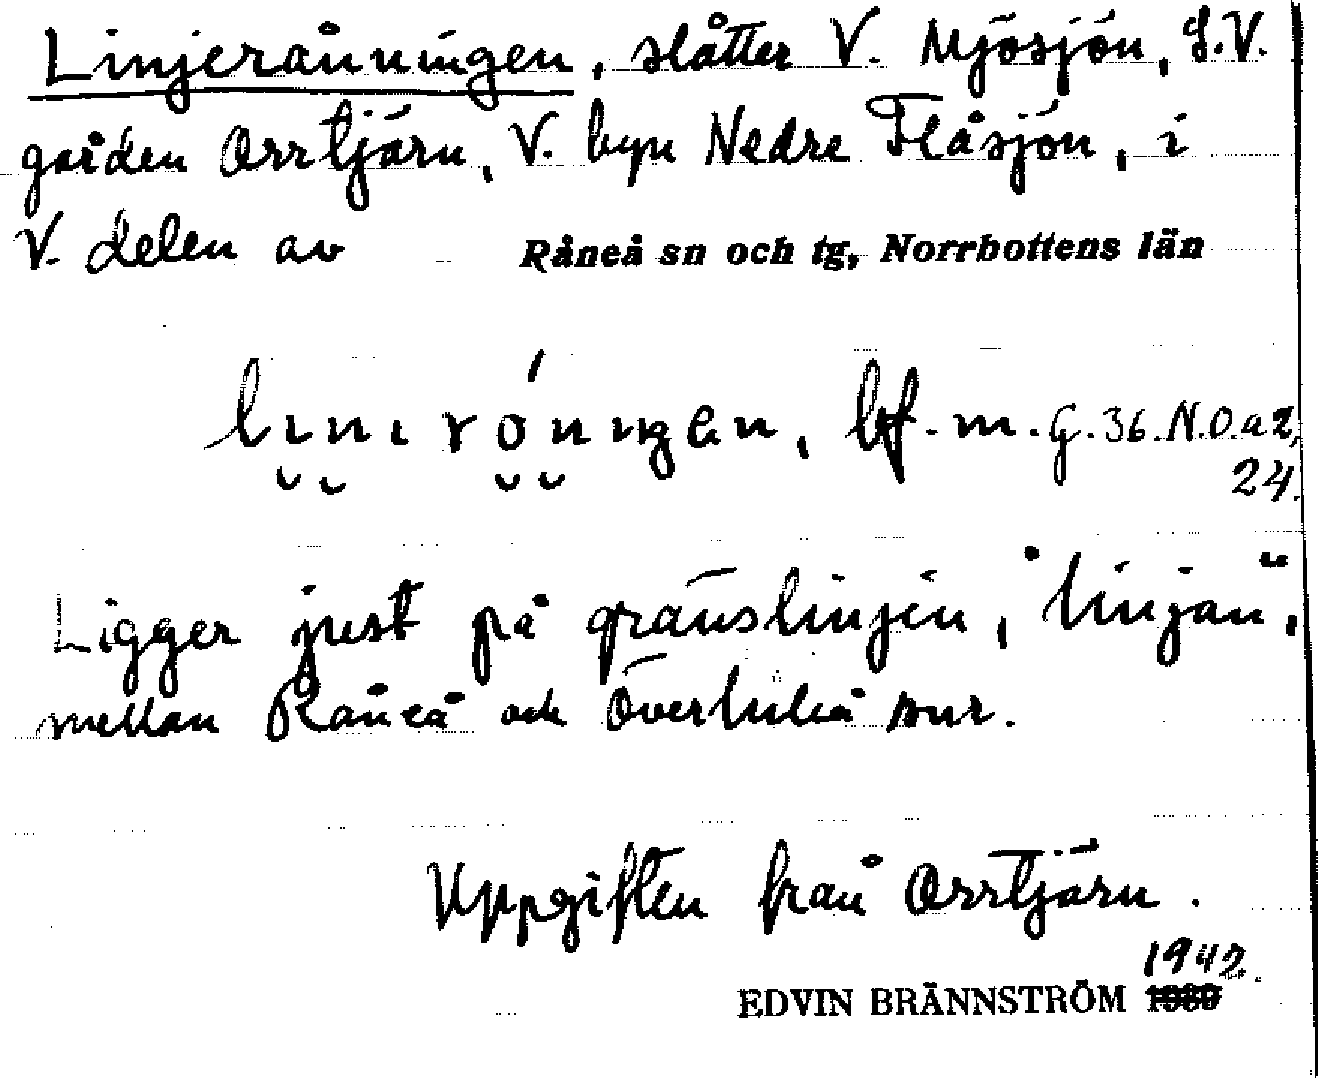 Linjerånningen, slåtter V. Mjösjön, S.V.
gården Orrtjärn, V. byn Nedre Flåsjön, i
V. delen av Råneå sn och tg, Norrbottens län
bf. m. G. 36. N.O. a 2,
24.
Ligger just på gränslinjen, "linjan",
mellan Råneå och Överluleå snr.
Uppgiften från Orrtjärn.
1942
EDVIN BRÄNNSTRÖM